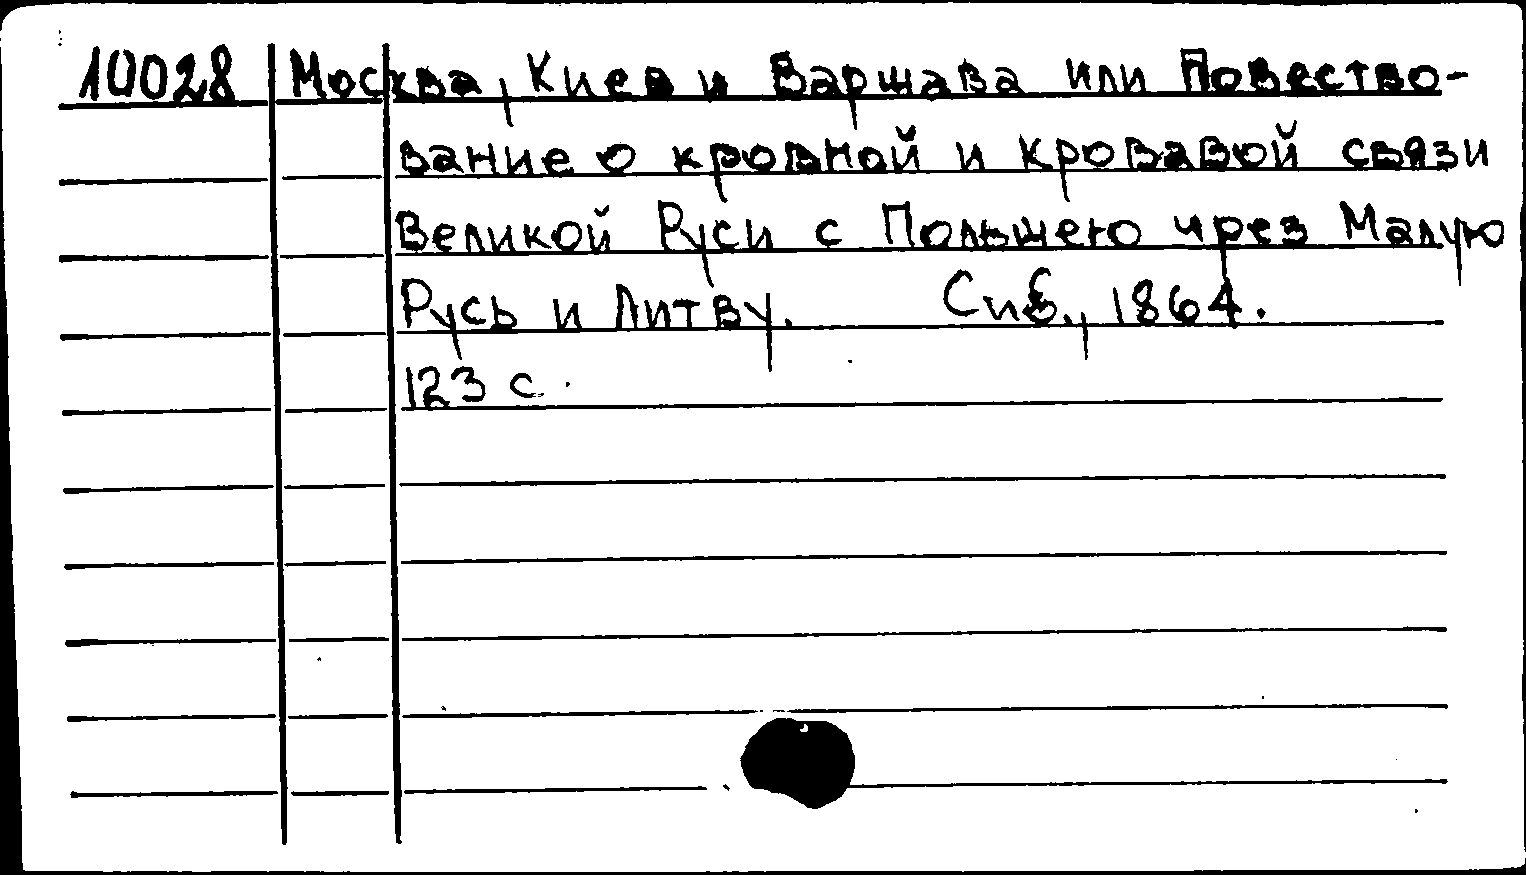 10028 Москва, Киев и Варшава или Повество-
вание о кровной и кровавой связи
Великой Руси с Польшею чрез Малую
Русь и Литву. Спб., 1864.
123 с.